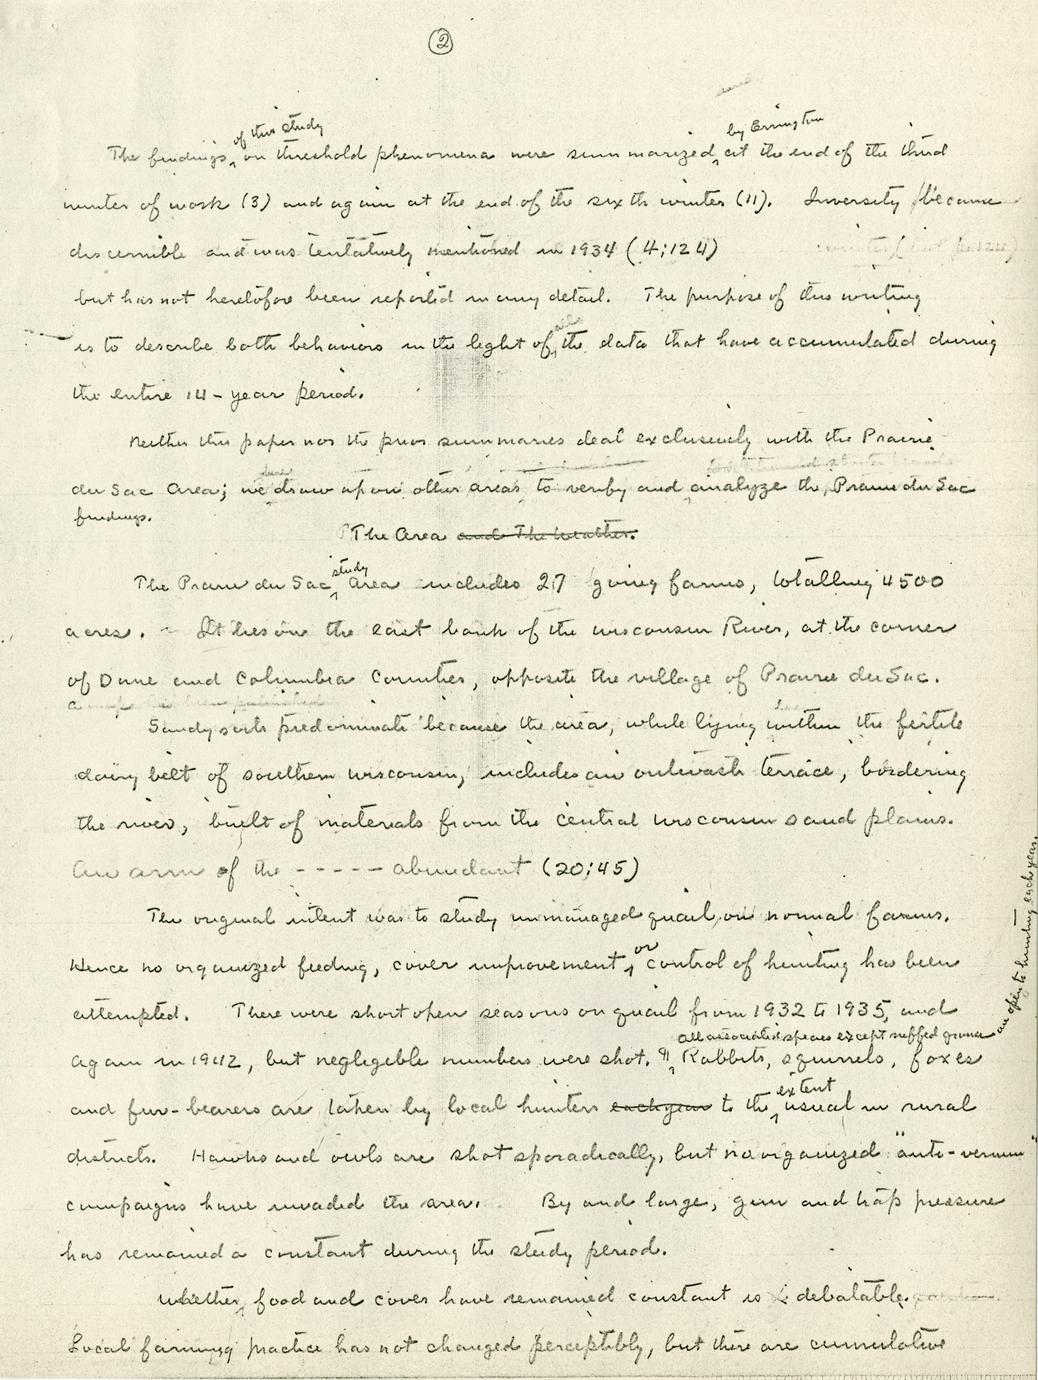 2
of this study
by Errington
The findings on threshold phenomena were summarized at the end of the third
winter of work (3) and again at the end of the sixth winter (11). Inversity became
discernible and was tentatively mentioned in 1934 (4;124)
but has not heretofore been reported in any detail. The purpose of this writing
is to describe both behaviors in the light of the data that have accumulated during
the entire 14-year period.
Neither this paper nor the prior summaries deal exclusively with the Prairie
du Sac Area; we draw upon other areas to verify and analyze the Prairie du Sac
findings.
The Area and The Weather.
study
The Prairie du Sac area includes 27 going farms, totalling 4500
acres. It lies on the east bank of the Wisconsin River, at the corner
of Dane and Columbia Counties, opposite the village of Prairie du Sac.
Sandy soils predominate because the area, while lying within the fertile
dairy belt of southern Wisconsin, includes an outwash terrace, bordering
the river, built of materials from the central Wisconsin sand plains.
An arm of the ----- abundant (20;45)
The original intent was to study unmanaged quail on normal farms.
or
Hence no organized feeding, cover improvement, control of hunting has been
attempted. There were short open seasons on quail from 1932 to 1935, and
all associated species except ruffed grouse are open to hunting each year.
again in 1942, but negligible numbers were shot. ¶ Rabbits, squirrels, foxes
extent
and fur-bearers are taken by local hunters each year to the usual in rural
districts. Hawks and owls are shot sporadically, but no organized "anti-vermin"
campaigns have invaded the area. By and large, gun and trap pressure
has remained a constant during the study period.
Whether food and cover have remained constant is debatable.
Local farming practice has not changed perceptibly, but there are cumulative